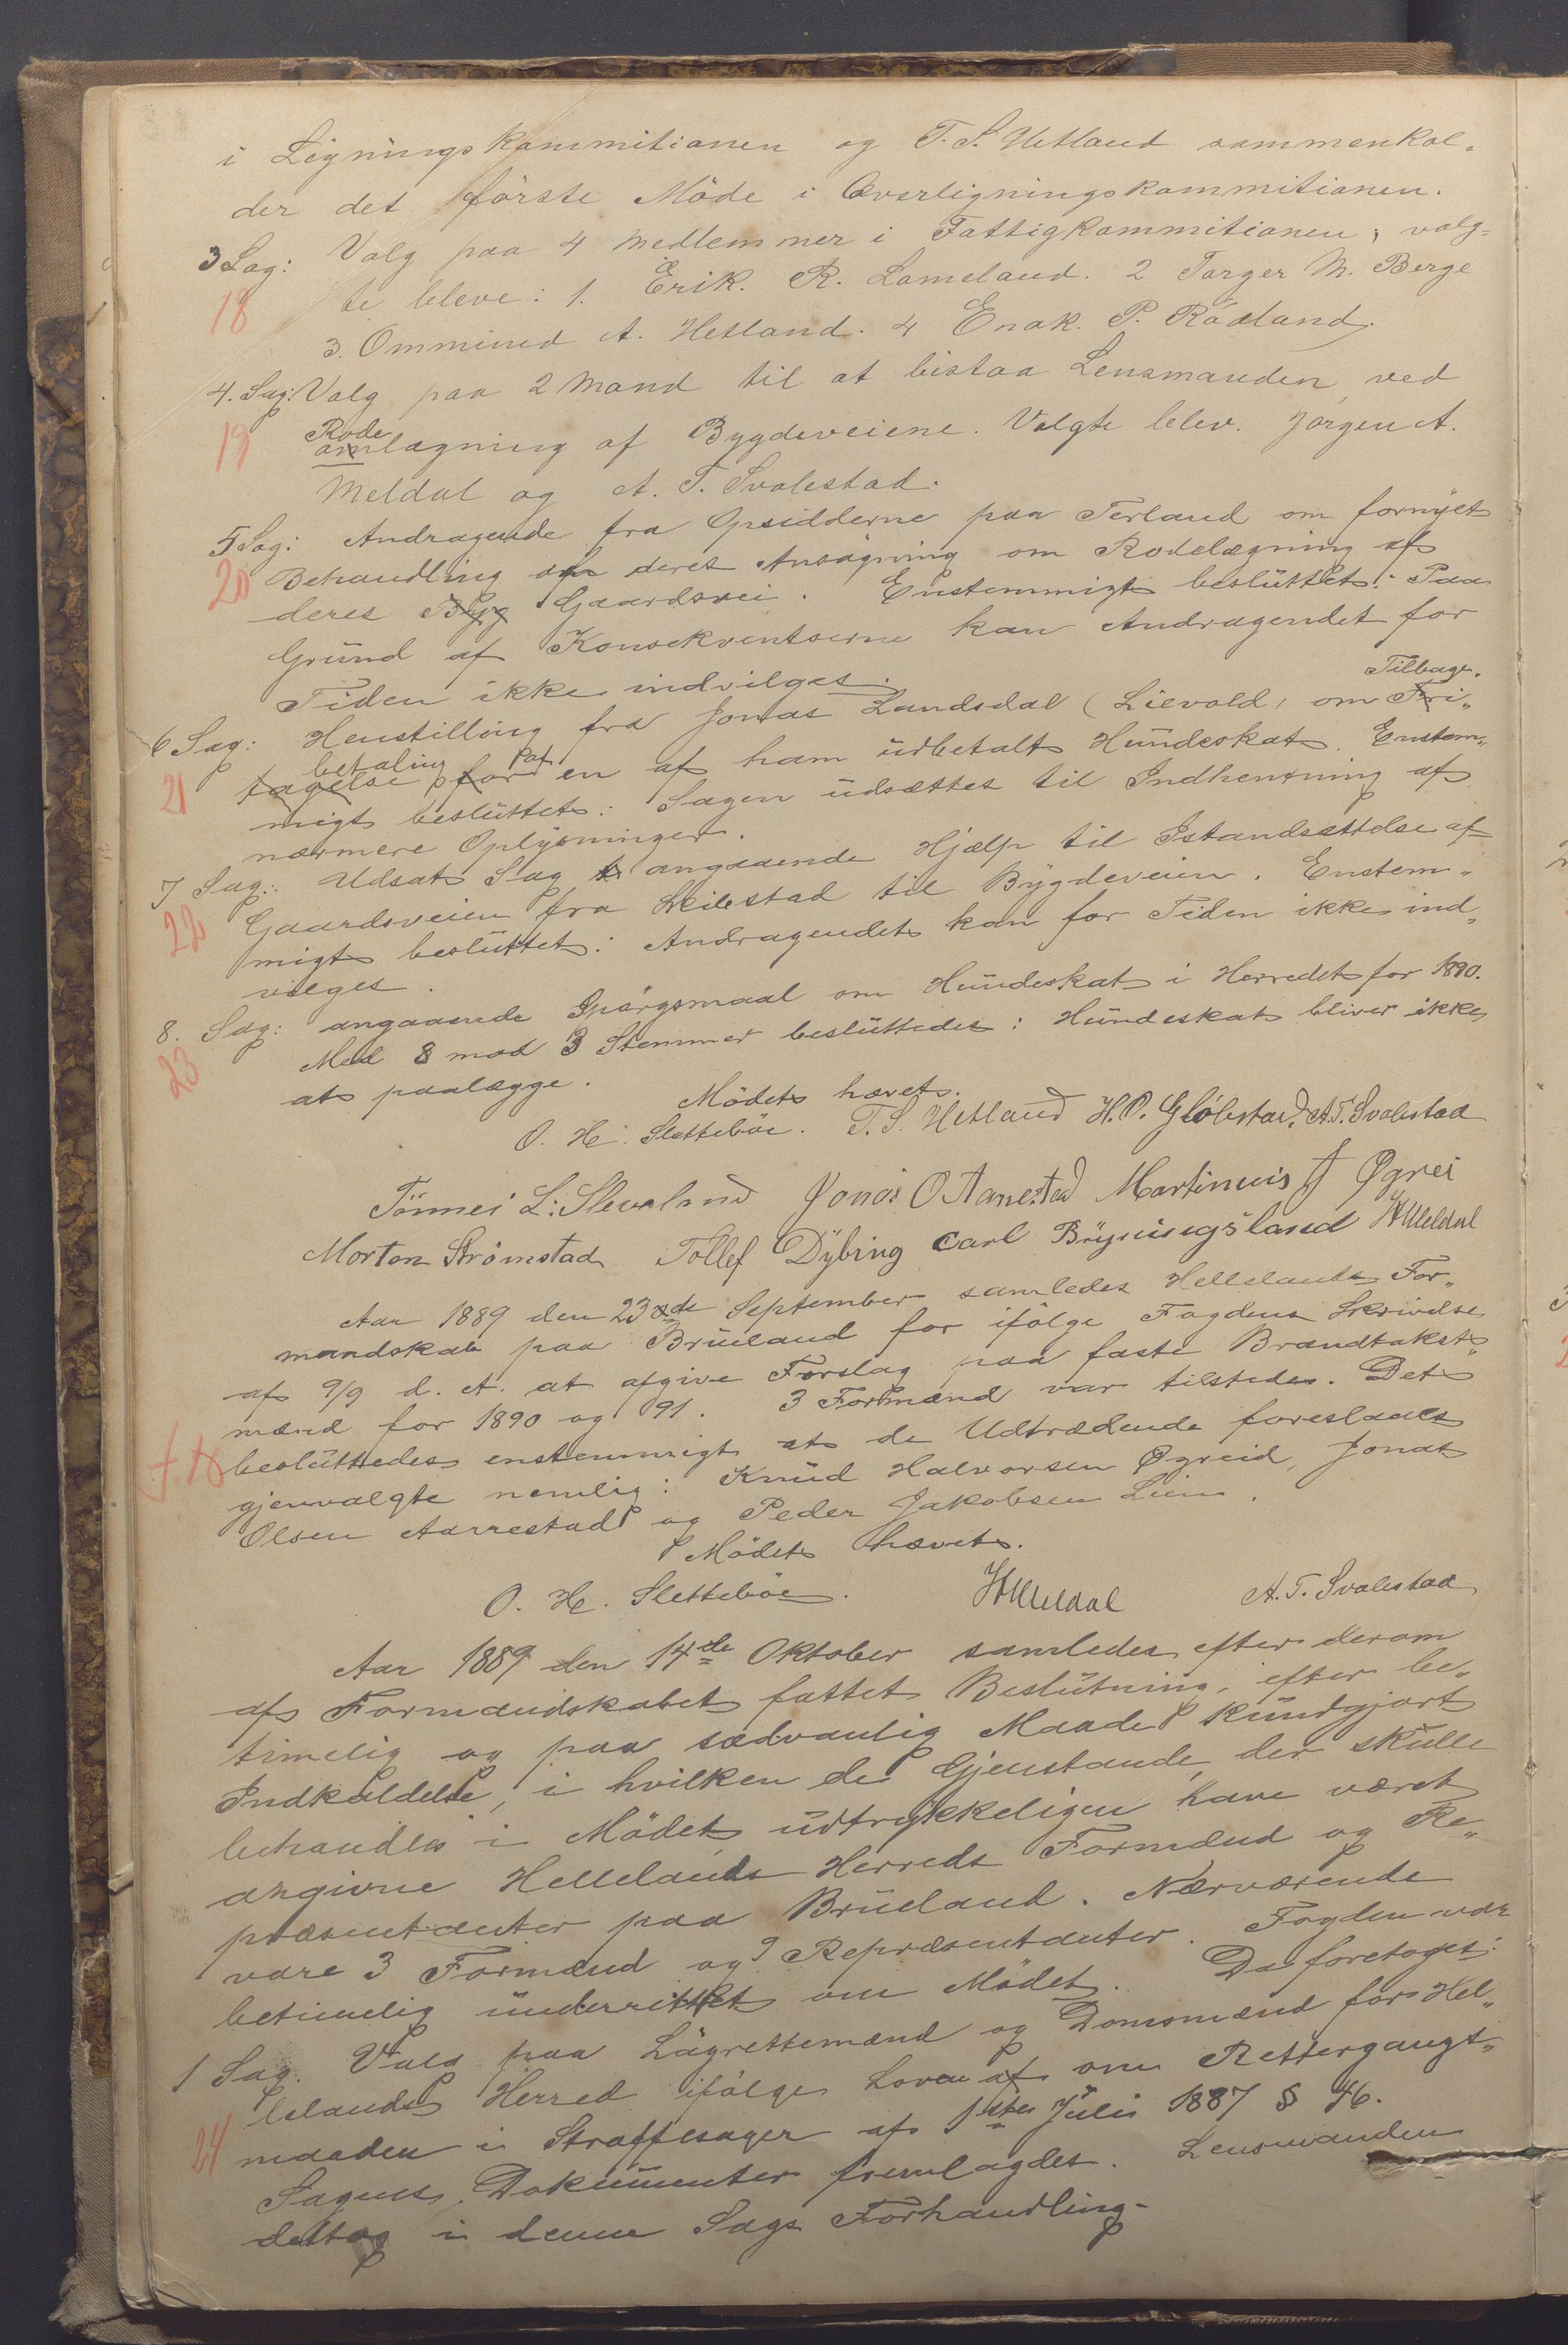 i Ligningskommitionen og T. S. Hetland sammenkal-
der det første Möde i Overligningskommitionen.
3 Sag: Valg paa 4 Medlemmer i Fattigkommitionen; valg-
18 te bleve: 1. Erik. R. Lomeland. 2 Torger M. Berge
3. Ommund A. Hetland. 4 Enok. P. Rödland.
4. Sag: Valg paa 2 Mand til at bistaa Lensmanden ved
19 Rode omlægning af Bygdeveiene. Valgte blev. Jörgen A.
Meldal og A. T. Svalestad.
5 Sag: Andragende fra Opsidderne paa Terland om fornyet
20 Behandling af deres Ansögning om Rodelægning af
deres Byg Gaardsvei. Enstemmigt besluttet: Paa
Grund af Konsekventserne kan Andragendet for
Tiden ikke indvilges.
6 Sag: Henstilling fra Jonas Landsdal (Lievold) om Fri- Tilbage-
21 tagelse for betaling paa en af ham udbetalt Hundeskat. Enstem-
migt besluttet: Sagen udsættes til Indhentning af
nærmere Oplysninger.
7 Sag: Udsat Sag angaaende Hjælp til Istandsættelse af
22 Gaardsveien fra Leidestad til Bygdeveien. Enstem-
migt besluttet: Andragendet kan for Tiden ikke ind-
vilges.
8. Sag: angaaende Spörgsmaal om Hundeskat i Herredet for 1890.
23 Med 8 mod 3 Stemmer besluttedes: Hundeskat bliver ikke
at paalægge.
Mödet hævet.
O. H. Sletteböe. T. S. Hetland H. P. Glöbstad. A. T. Svalestad
Tönnes L: Slevoland Jonas O Aarrestad Martinuis J Øgrei
Morton Strömstad Tollef Dybing Carl Bryningsland Meldal
Aar 1889 den 23de September samledes Hellelands For-
mandskab paa Brueland for ifölge Fogdens Skrivelse
af 9/9 d. A. at afgive Forslag paa faste Brandtakst-
mænd for 1890 og 91. 3 Formænd var tilstede. Det
besluttedes enstemmigt at de Udtrædende foreslaaes
gjenvalgte nemlig: Knud Halvorsen Øgreid, Jonas
Olsen Aarrestad og Peder Jakobsen Liem.
Mödet hævet.
O. H. Sletteböe. Meldal A. T. Svalestad
Aar 1889 den 14de Oktober samledes efter derom
af Formandskabet fattet Beslutning, efter be-
timelig og paa sædvanlig Maade kundgjort
Indkaldelse, i hvilken de Gjenstande, der skulle
behandles i Mödet udtrykkeligen have været
angivne Hellelands Herreds Formænd og Re-
præsentanter paa Brueland. Nærværende
vare 3 Formænd og 9 Repræsentanter. Fogden var
betimelig underrettet om Mödet. Da foretoges:
1 Sag. Valg paa Lagrettemænd og Domsmænd for Hel-
lelands Herred ifölge Loven af om Rettergangs-
24 maaden i Straffesager af 1ste Juli 1887 § 46.
Sagens Dokumenter fremlagdes. Lensmanden
deltog i denne Sags Forhandling.